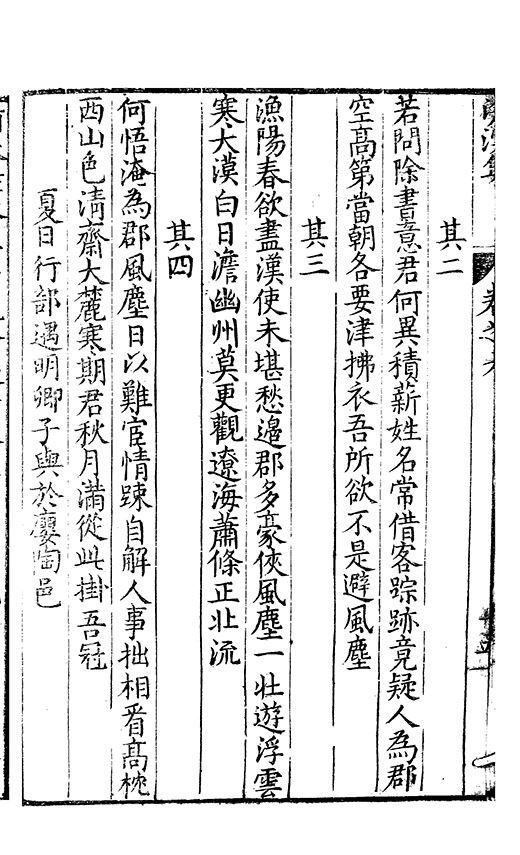 其二
若問除書意君何異積薪姓名常借客踪跡竟疑人為郡
空高第當朝各要津拂衣吾所欲不是避風塵
其三
漁陽春欲盡漢使未堪愁邊郡多豪俠風塵一壯遊浮雲
寒大漠白日澹幽州莫更觀遼海蕭條正北流
其四
何悟淹為郡風塵日以難宦情踈自解人事拙相看高枕
西山色清齋大麓寒期君秋月滿從此掛吾冠
夏日行部遇明卿子與於廮陶邑